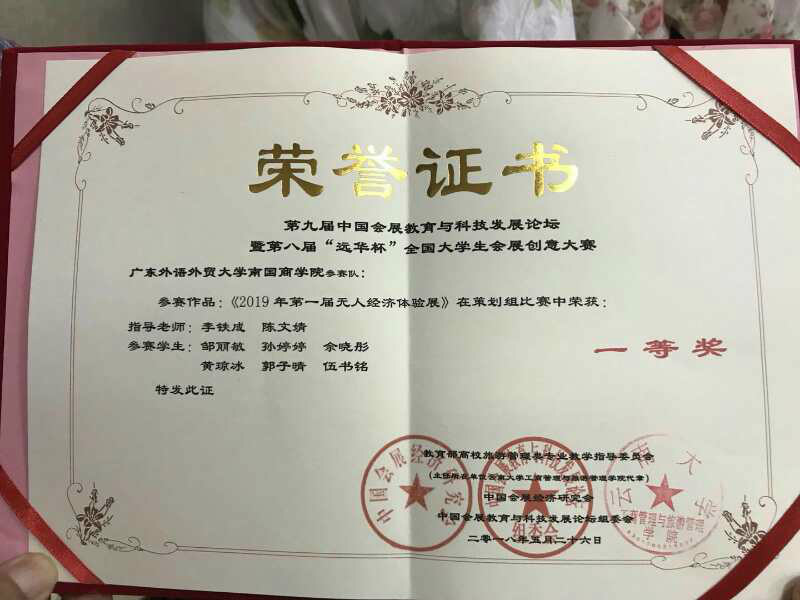 荣誉证书
第九届中国会展教育与科技发展论坛
暨第八届“远华杯”全国大学生会展创意大赛
广东外语外贸大学南国商学院参赛队：
参赛作品：《2019年第一届无人经济体验展》在策划组比赛中荣获：
指导老师：李铁成 陈文婧
参赛学生：邹丽敏 孙婷婷 余晓彤
黄琼冰 郭子晴 伍书铭
一等奖
特发此证
教育部高校旅游管理类专业教学指导委员会
（主任所在单位云南大学工商管理与旅游管理学院代章）
中国会展经济研究会
中国会展教育与科技发展论坛组委会
二〇一八年五月二十六日
中国会展经济研究会
组委会
云南大学
工商管理与旅游管理
学院